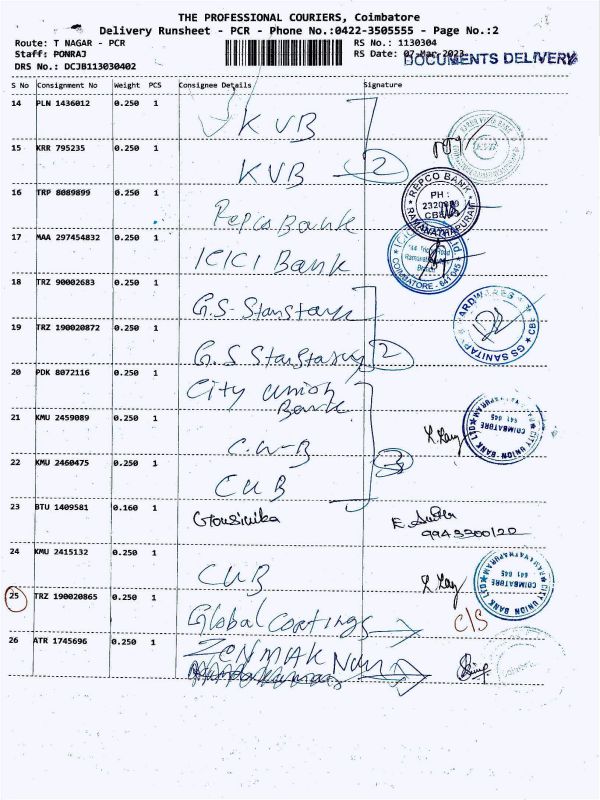 THE PROFESSIONAL COURIERS, Coimbatore
Delivery Runsheet - PCR - Phone No.:0422-3505555 - Page No.:2
Route: T NAGAR - PCR RS No.: 1130304
Staff: PONRAJ RS Date: 07-Mar-2023
DOCUMENTS DELIVERY
DRS No.: DCJB113030402
S No Consignment No Weight PCS Consignee Details Signature
14 PLN 1436012 0.250 1 KVB
15 KRR 795235 0.250 1 KVB 2
16 TRP 8089899 0.250 1 Repco Bank
REPCO BANK
PH :
RAMANATHAPURAM
17 MAA 297454832 0.250 1 ICICI Bank
COIMBATORE - 641 045
18 TRZ 90002683 0.250 1 G.S-
19 TRZ 190020872 0.250 1 G.S 2
GS SANITARY
20 PDK 8072116 0.250 1 City union
Bank
21 KMU 2459089 0.250 1 C.U-B
CITY UNION BANK LTD
COIMBATORE
641 045
22 KMU 2460475 0.250 1 CUB 3
23 BTU 1409581 0.160 1 Gousinika
24 KMU 2415132 0.250 1 CUB
CITY UNION BANK LTD
COIMBATORE
641 045
25 TRZ 190020865 0.250 1 Global Coatings C/S
26 ATR 1745696 0.250 1 ZEN MAK